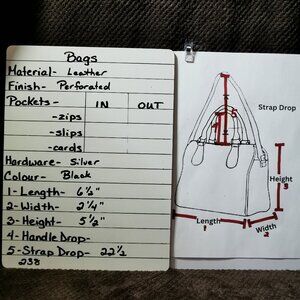 Bags
Material- Leather
Finish- Perforated
Pockets- IN OUT
-zips
-slips
-cards
Hardware- Silver
Colour- Black
1-Length- 6½"
2-Width- 2¼"
3-Height- 5½"
4-Handle Drop-
5-Strap Drop- 22½
238
Strap Drop
5
4
Height
3
Length
1
Width
2